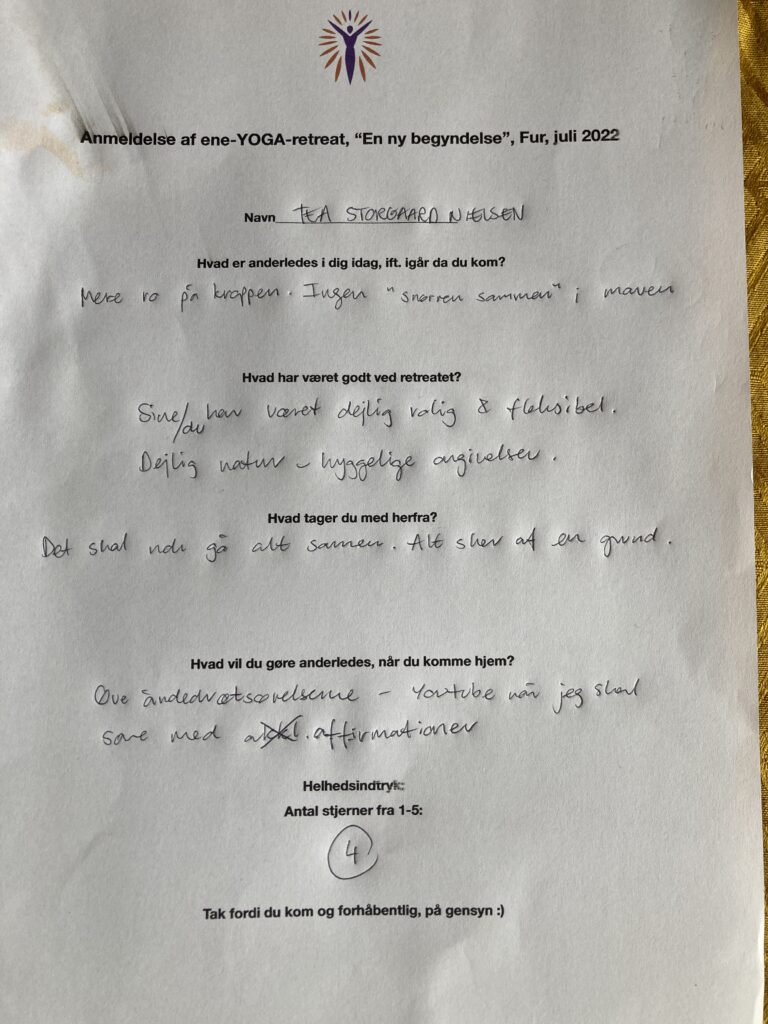 Anmeldelse af ene-YOGA-retreat, “En ny begyndelse”, Fur, juli 2022
Navn TEA STORGAARD NIELSEN
Hvad er anderledes i dig idag, ift. igår da du kom?
Mere ro på kroppen. Ingen "snorren sammen" i maven
Hvad har været godt ved retreatet?
Sine/du har været dejlig rolig & fleksibel.
Dejlig natur - hyggelige omgivelser.
Hvad tager du med herfra?
Det skal nok gå alt sammen. Alt sker af en grund.
Hvad vil du gøre anderledes, når du komme hjem?
Øve åndedrætsøvelserne - Youtube når jeg skal
sove med affirmationer
Helhedsindtryk:
Antal stjerner fra 1-5:
4
Tak fordi du kom og forhåbentlig, på gensyn :)